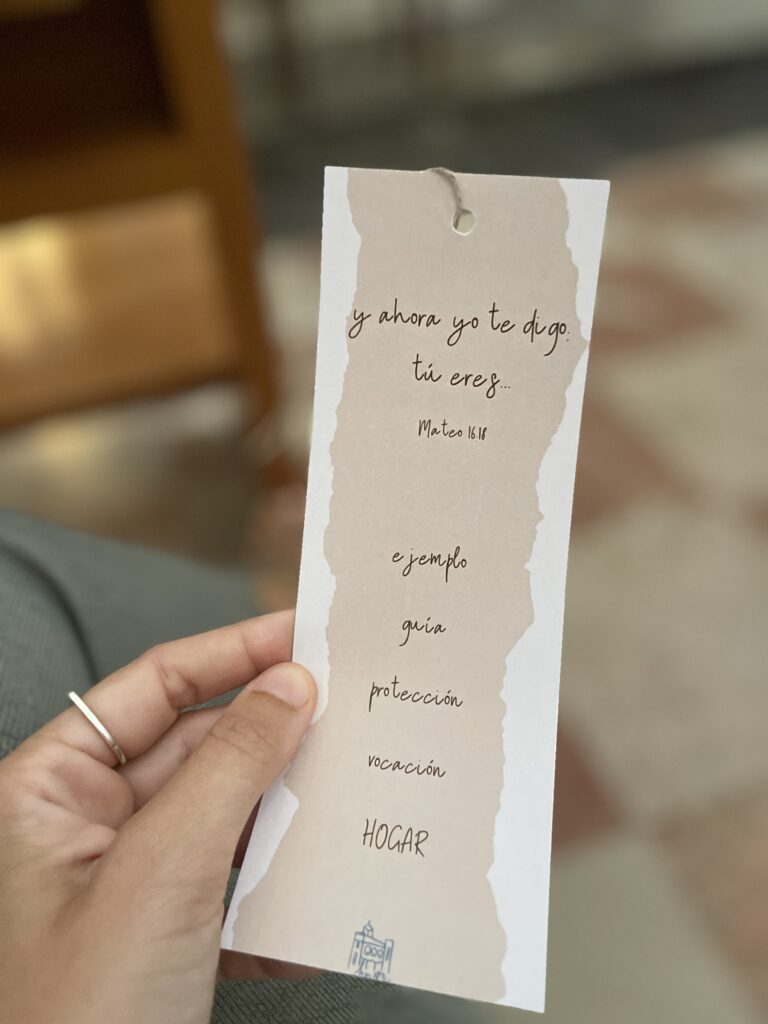 y ahora yo te digo:
tú eres...
Mateo 16,18
ejemplo
guía
protección
vocación
HOGAR